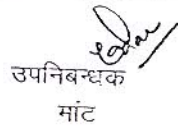 उपनिबन्धक
मांट